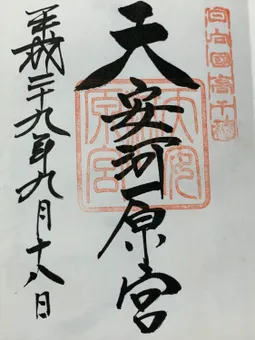 日向國高千穂
天安河原宮
平成二十九年九月十八日